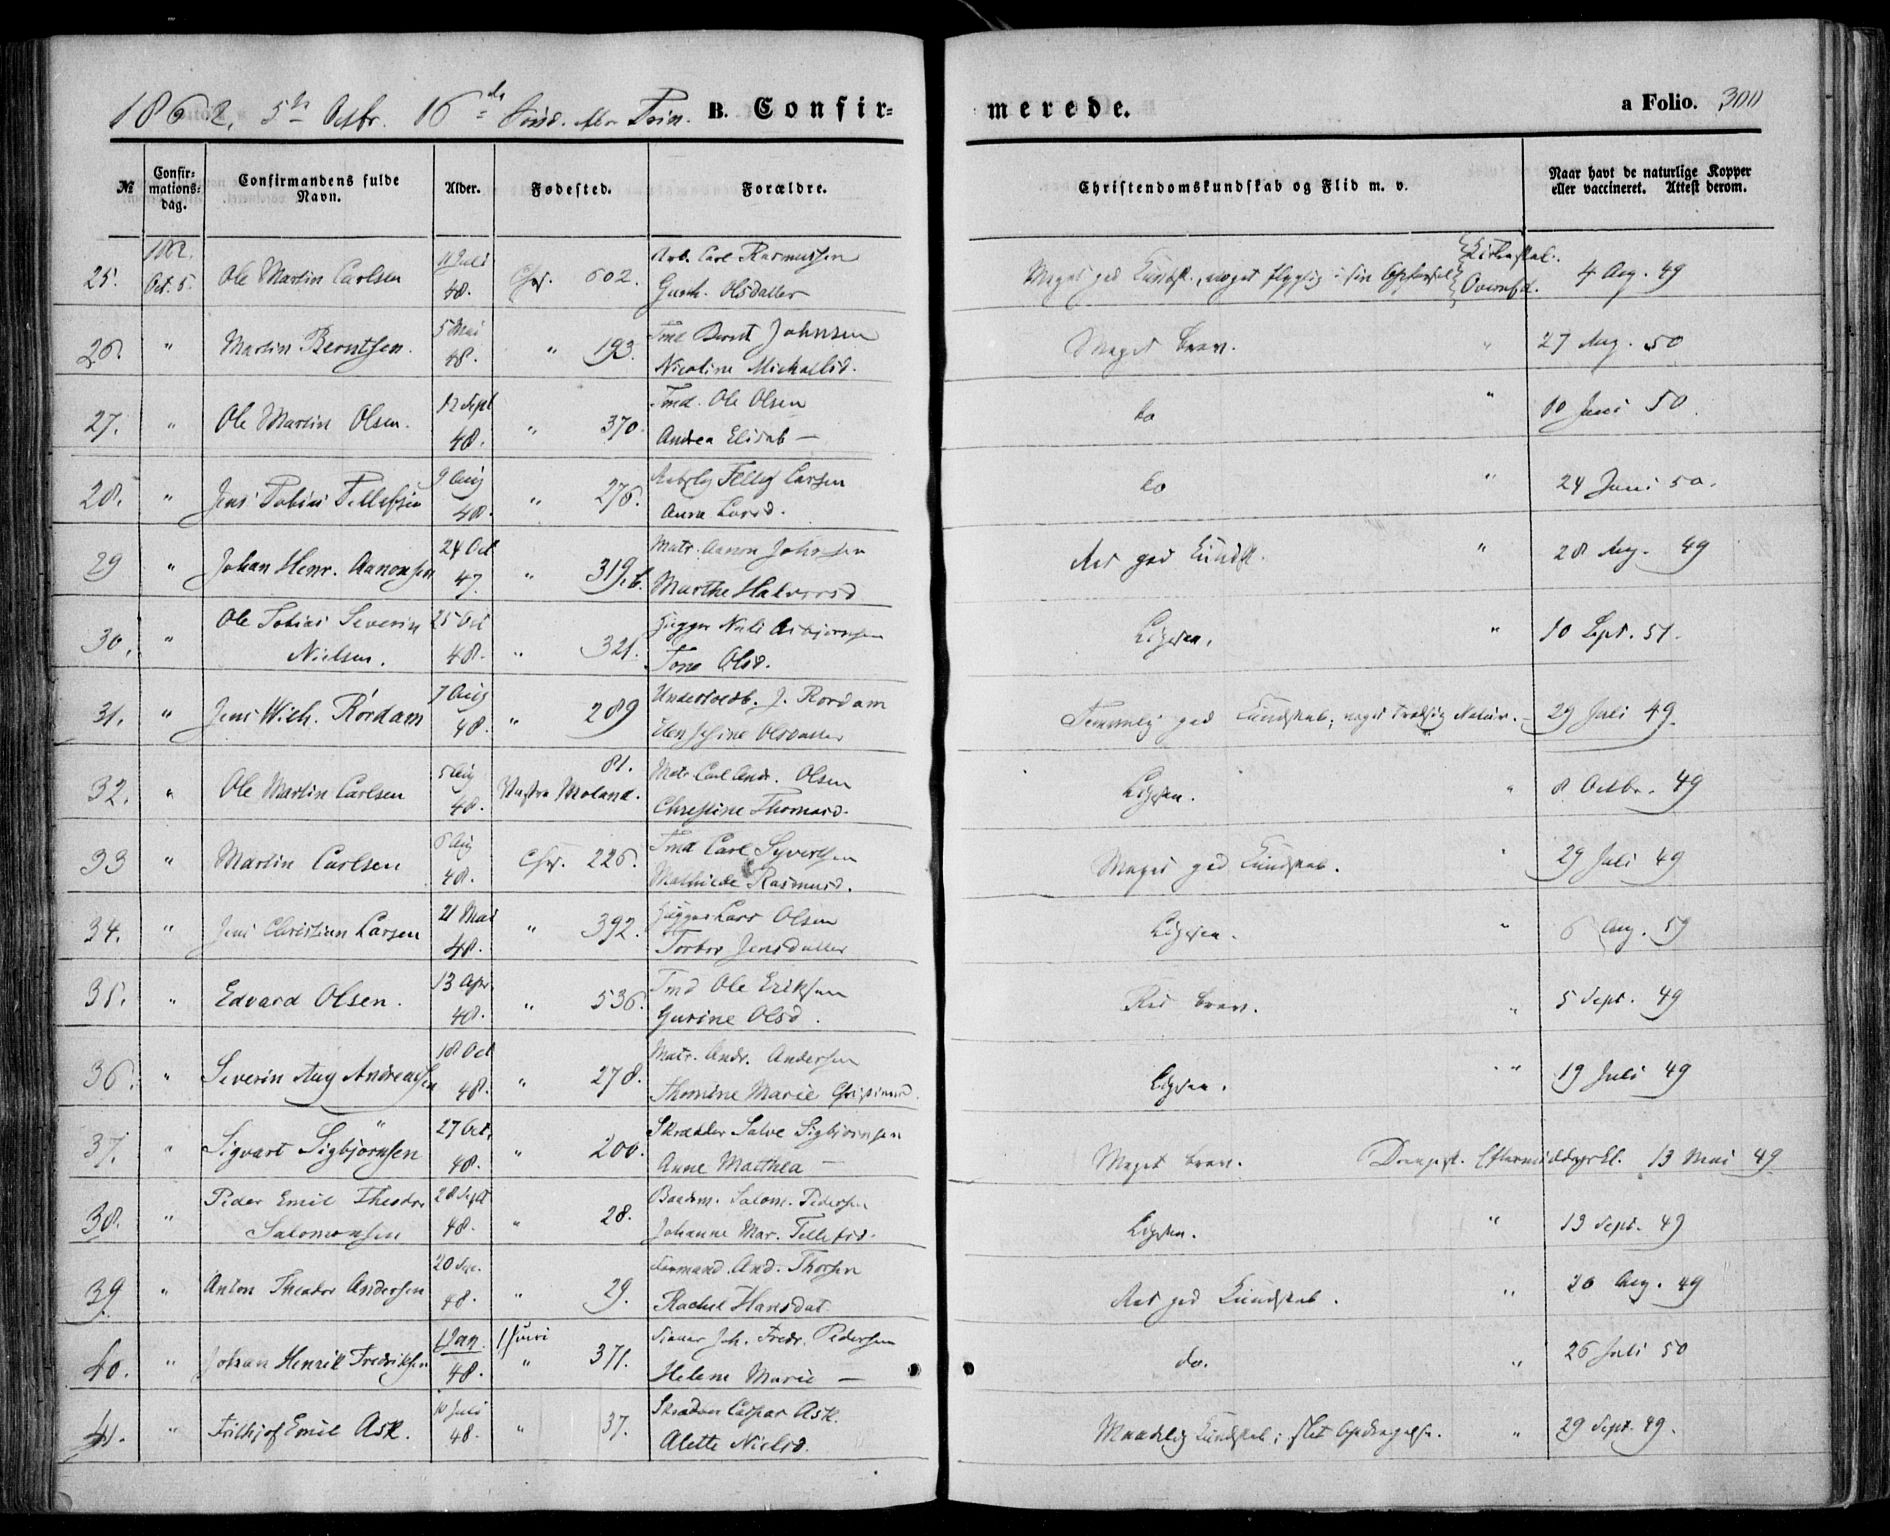 1862. 5te Octbr. 16de Sønd. efter Trin. B. Confir-
merede. a Folio. 300
№ Confir-mations-dag. Confirmandens fulde Navn. Alder. Fødested. Forældre. Christendomskundskab og Flid m. v. Naar havt de naturlige Kopper eller vaccineret. Attest derom.
25. 1862. Oct. 5. Ole Martin Carlsen 11 Juli 48. Chr. 602. Arb. Carl Rasmussen
Gunh. Olsdatter Meget god Kundsk., noget flygtig i sin Opførsel 4 Aug. 49
26. " Martin Berntsen. 5 Mai 48. " 193. Tmd Bernt Johnsen
Nicoline Michaelsd. Meget brav. " 27 Aug. 50
27. " Ole Martin Olsen. 12 Sept 48. " 370 Tmd. Ole Olsen
Andrea Elisab — do " 10 Juni 50.
28. " Jens Tobias Tellefsen 9 Aug 48. " 276. Tellef Larsen
Anne Larsd. do " 24 Juni 50.
29 " Johan Henr. Aanonsen 24 Oct 47. " 319.b. Matr. Aanon Johnsen
Marthe Halvorsd god Kundsk. " 28 Aug. 49
30. " Ole Tobias Severin
Nielsen. 25 Oct 48. " 321. Niels Asbjørnsen
Tone Olsd. Ligesaa. " 10 Sept. 51.
31. " Jens Wilh. Rørdam 7 Aug 48. " 289 J. Rørdam
Olsdatter Temmelig god Kundskab; noget Natur. 29 Juli 49.
32. " Ole Martin Carlsen 5 Aug 48. Vestre Moland. 81. Matr Carl Andr. Olsen
Christine Thomasd. Ligesaa. " 8 Octbr. 49
33 " Martin Carlsen 6 Aug 48. Chr. 226. Tmd Carl Syvertsen
Mathilde Rasmusd. Meget god Kundskab. " 29 Juli 49
34. " Jens Christian Larsen 21 Mai 48. " 392. Lars Olsen
Torbor Jensdatter Ligesaa. " 6 Aug. 59
35. " Edvard Olsen. 13 Apr. 48. " 536. Tmd Ole Eriksen
Gurine Olsd. brav. " 5 Sept. 49
36. " Severin Aug Andreassen 18 Oct 48. " 278. Matr. Andr. Andersen
Thomine Marie Christiansd. Ligesaa. " 19 Juli 49
37. " Sigvart Sigbjørnsen 27 Oct. 48. " 200. Skrædder Salve Sigbjørnsen
Anne Matthea — Meget brav. Eftermiddagskl. 13 Mai 49
38. " Peder Emil Theodor
Salomonsen 28 Sept 48. " 28. Baadsm. Salom. Pedersen
Johanne Mar. Tellefsd. Ligesaa. " 13 Sept. 49
39. " Anton Theodor Andersen 20 48. " 29. And. Thorsen
Rachel Hansdat. god Kundskab. " 20 Aug. 49
40. " Johan Henrik Fredriksen 1 Jan. 48. 1 Juni " 371. Joh. Fredr. Pedersen
Helene Marie — do. " 26 Juli 50
41. " Frithjof Emil Ask. 10 Juli 48. " 37. Caspar Ask.
Alette Nielsd. Maadelig Kundskab; slet Opdragelse. " 29 Sept. 49.